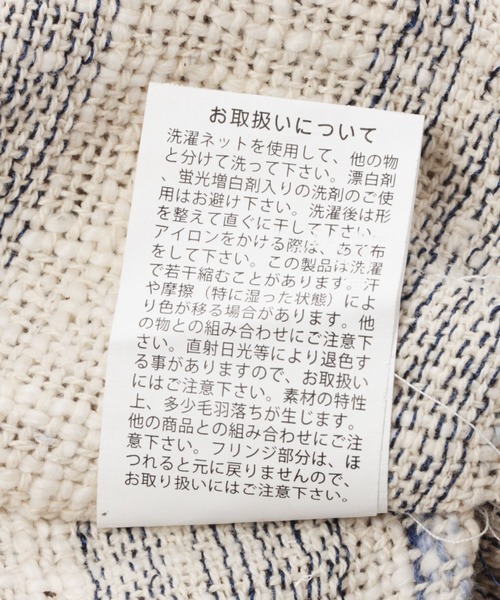 お取扱いについて
洗濯ネットを使用して、他の物
と分けて洗って下さい。漂白剤
、蛍光増白剤入りの洗剤のご使
用はお避け下さい。洗濯後は形
を整えて直ぐに干して下さい。
アイロンをかける際は、あて布
をして下さい。この製品は洗濯
で若干縮むことがあります。汗
や摩擦（特に湿った状態）によ
り色が移る場合があります。他
の物との組み合わせにご注意下
さい。直射日光等により退色す
る事がありますので、お取扱い
にはご注意下さい。素材の特性
上、多少毛羽落ちが生じます。
他の商品との組み合わせにご注
意下さい。フリンジ部分は、ほ
つれると元に戻りませんので、
お取り扱いにはご注意下さい。